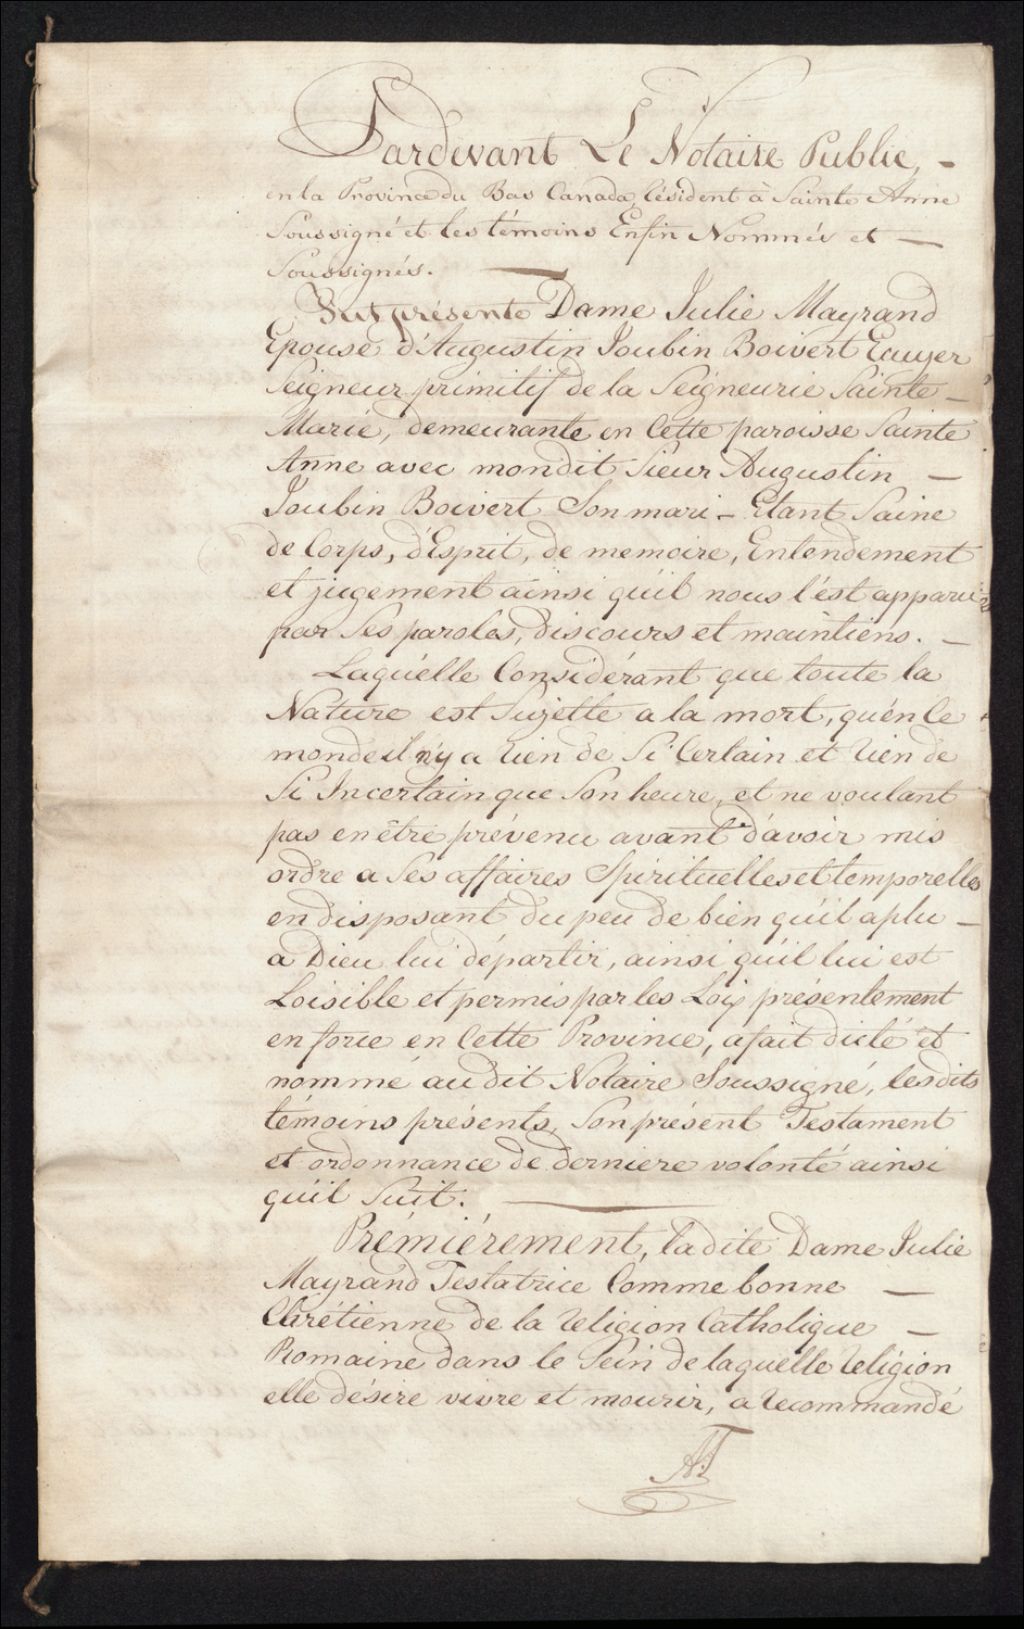 Pardevant Le Notaire Public, -
en la Province du Bas Canada, résident à Sainte Anne
Soussigné et les témoins Enfin Nommés et —
Soussignés. —
Fut présente Dame Julie Mayrand
Epouse d'Augustin Joubin Boivert Ecuyer
Seigneur primitif de la Seigneurie Sainte -
Marie, demeurante en Cette paroisse Sainte
Anne avec mondit Sieur Augustin —
Joubin Boivert Son mari - Etant Saine
de Corps, d'Esprit, de memoire, Entendement
et jugement ainsi qu'il nous l'est apparu
par Ses paroles, discours et maintiens. —
Laquélle Considérant que toute la
Nature est Sujette a la mort, qu'én Ce
monde il n'y a rien de Si Certain et rien de
Si Incertain que Son heure, et ne voulant
pas en être prévenu avant d'avoir mis
ordre a Ses affaires Spirituelles et temporelles
en disposant du peu de bien qu'il a plu —
a Dieu lui départir, ainsi qu'il lui est
Loisible et permis par les Loix présentement
en force en Cette Province, a fait dicté et
nommé au dit Notaire Soussigné, les dits
témoins présents, Son présent Testament
et ordonnance de derniere volonté ainsi
qu'il Suit. —
Prémiérement, la dite Dame Julie
Mayrand Testatrice Comme bonne —
Chrétienne de la religion Catholique —
Romaine dans le Sein de laquélle religion
elle désire vivre et mourir, a recommandé